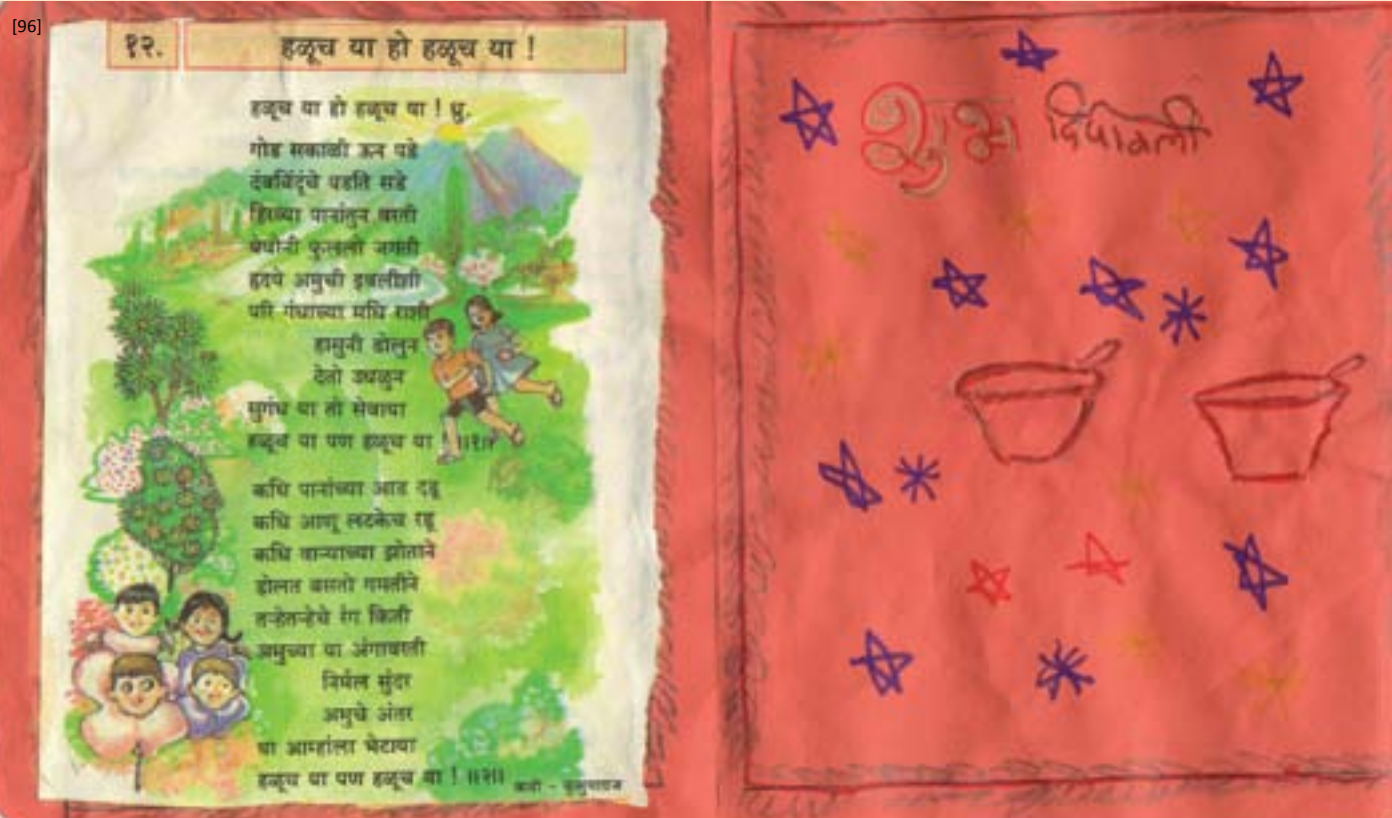 [96]
१२. हळूच या हो हळूच या !
हळूच या हो हळूच या ! ध्रु.
गोड सकाळी ऊन पडे
दंवबिंदूंचे पडति सडे
हिरव्या पानांतुन वरती
येवोनी फुललो जगती
हृदये अमुची इवलीशी
परि गंधाच्या मधि राशी
हासुनी डोलुन
देतो उधळुन
सुगंध या तो सेवाया
हळूच या पण हळूच या ! ॥१॥
कधि पानांच्या आड दडू
कधि आणू लटकेच रडू
कधि वाऱ्याच्या झोताने
डोलत बसतो गमतीने
तऱ्हेतऱ्हेचे रंग किती
अमुच्या या अंगावरती
निर्मल सुंदर
अमुचे अंतर
या आम्हांला भेटाया
हळूच या पण हळूच या ! ॥२॥
कवी - कुसुमाग्रज
शुभ दिपावली